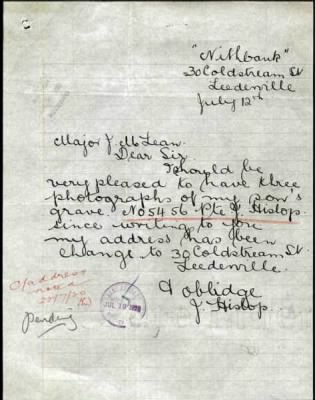 "Nithbank"
30 Coldstream St
Leederville
July 12th
Major J. McLean.
Dear Sir
I should be
very pleased to have three
photographs of my son's
grave. No 5456 Pte J Hislop.
since writing to you
my address has been
change to 30 Coldstream St
Leederville.
& oblidge
J. Hislop.
C/address
noted
Pending
JUL 19 1920